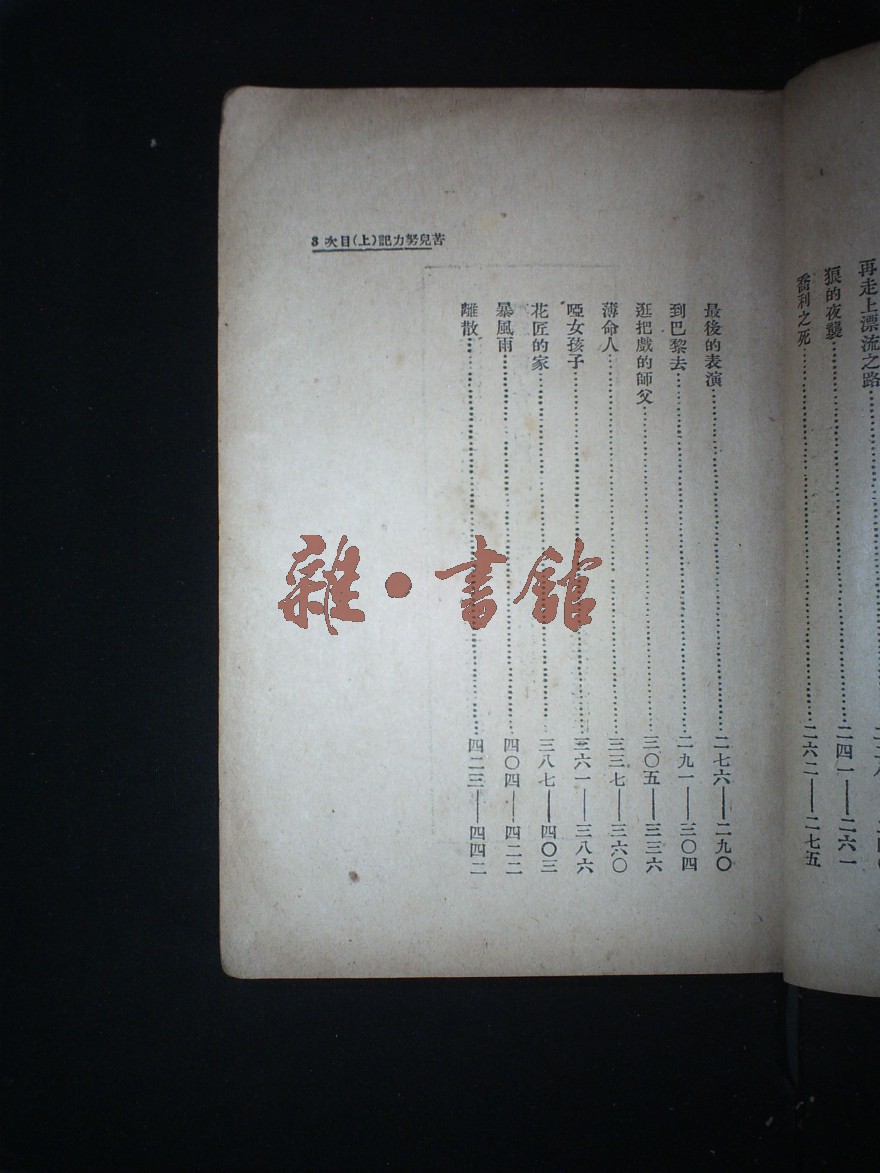 再走上漂流之路
狼的夜襲 二四一——二六一
喬利之死 二六二——二七五
苦兒努力記(上)目次 3
最後的表演 二七六——二九〇
到巴黎去 二九一——三〇四
逛把戲的師父 三〇五——三三六
薄命人 三三七——三六〇
啞女孩子 三六一——三八六
花匠的家 三八七——四〇三
暴風雨 四〇四——四二二
離散 四二三——四四二
雜·書館